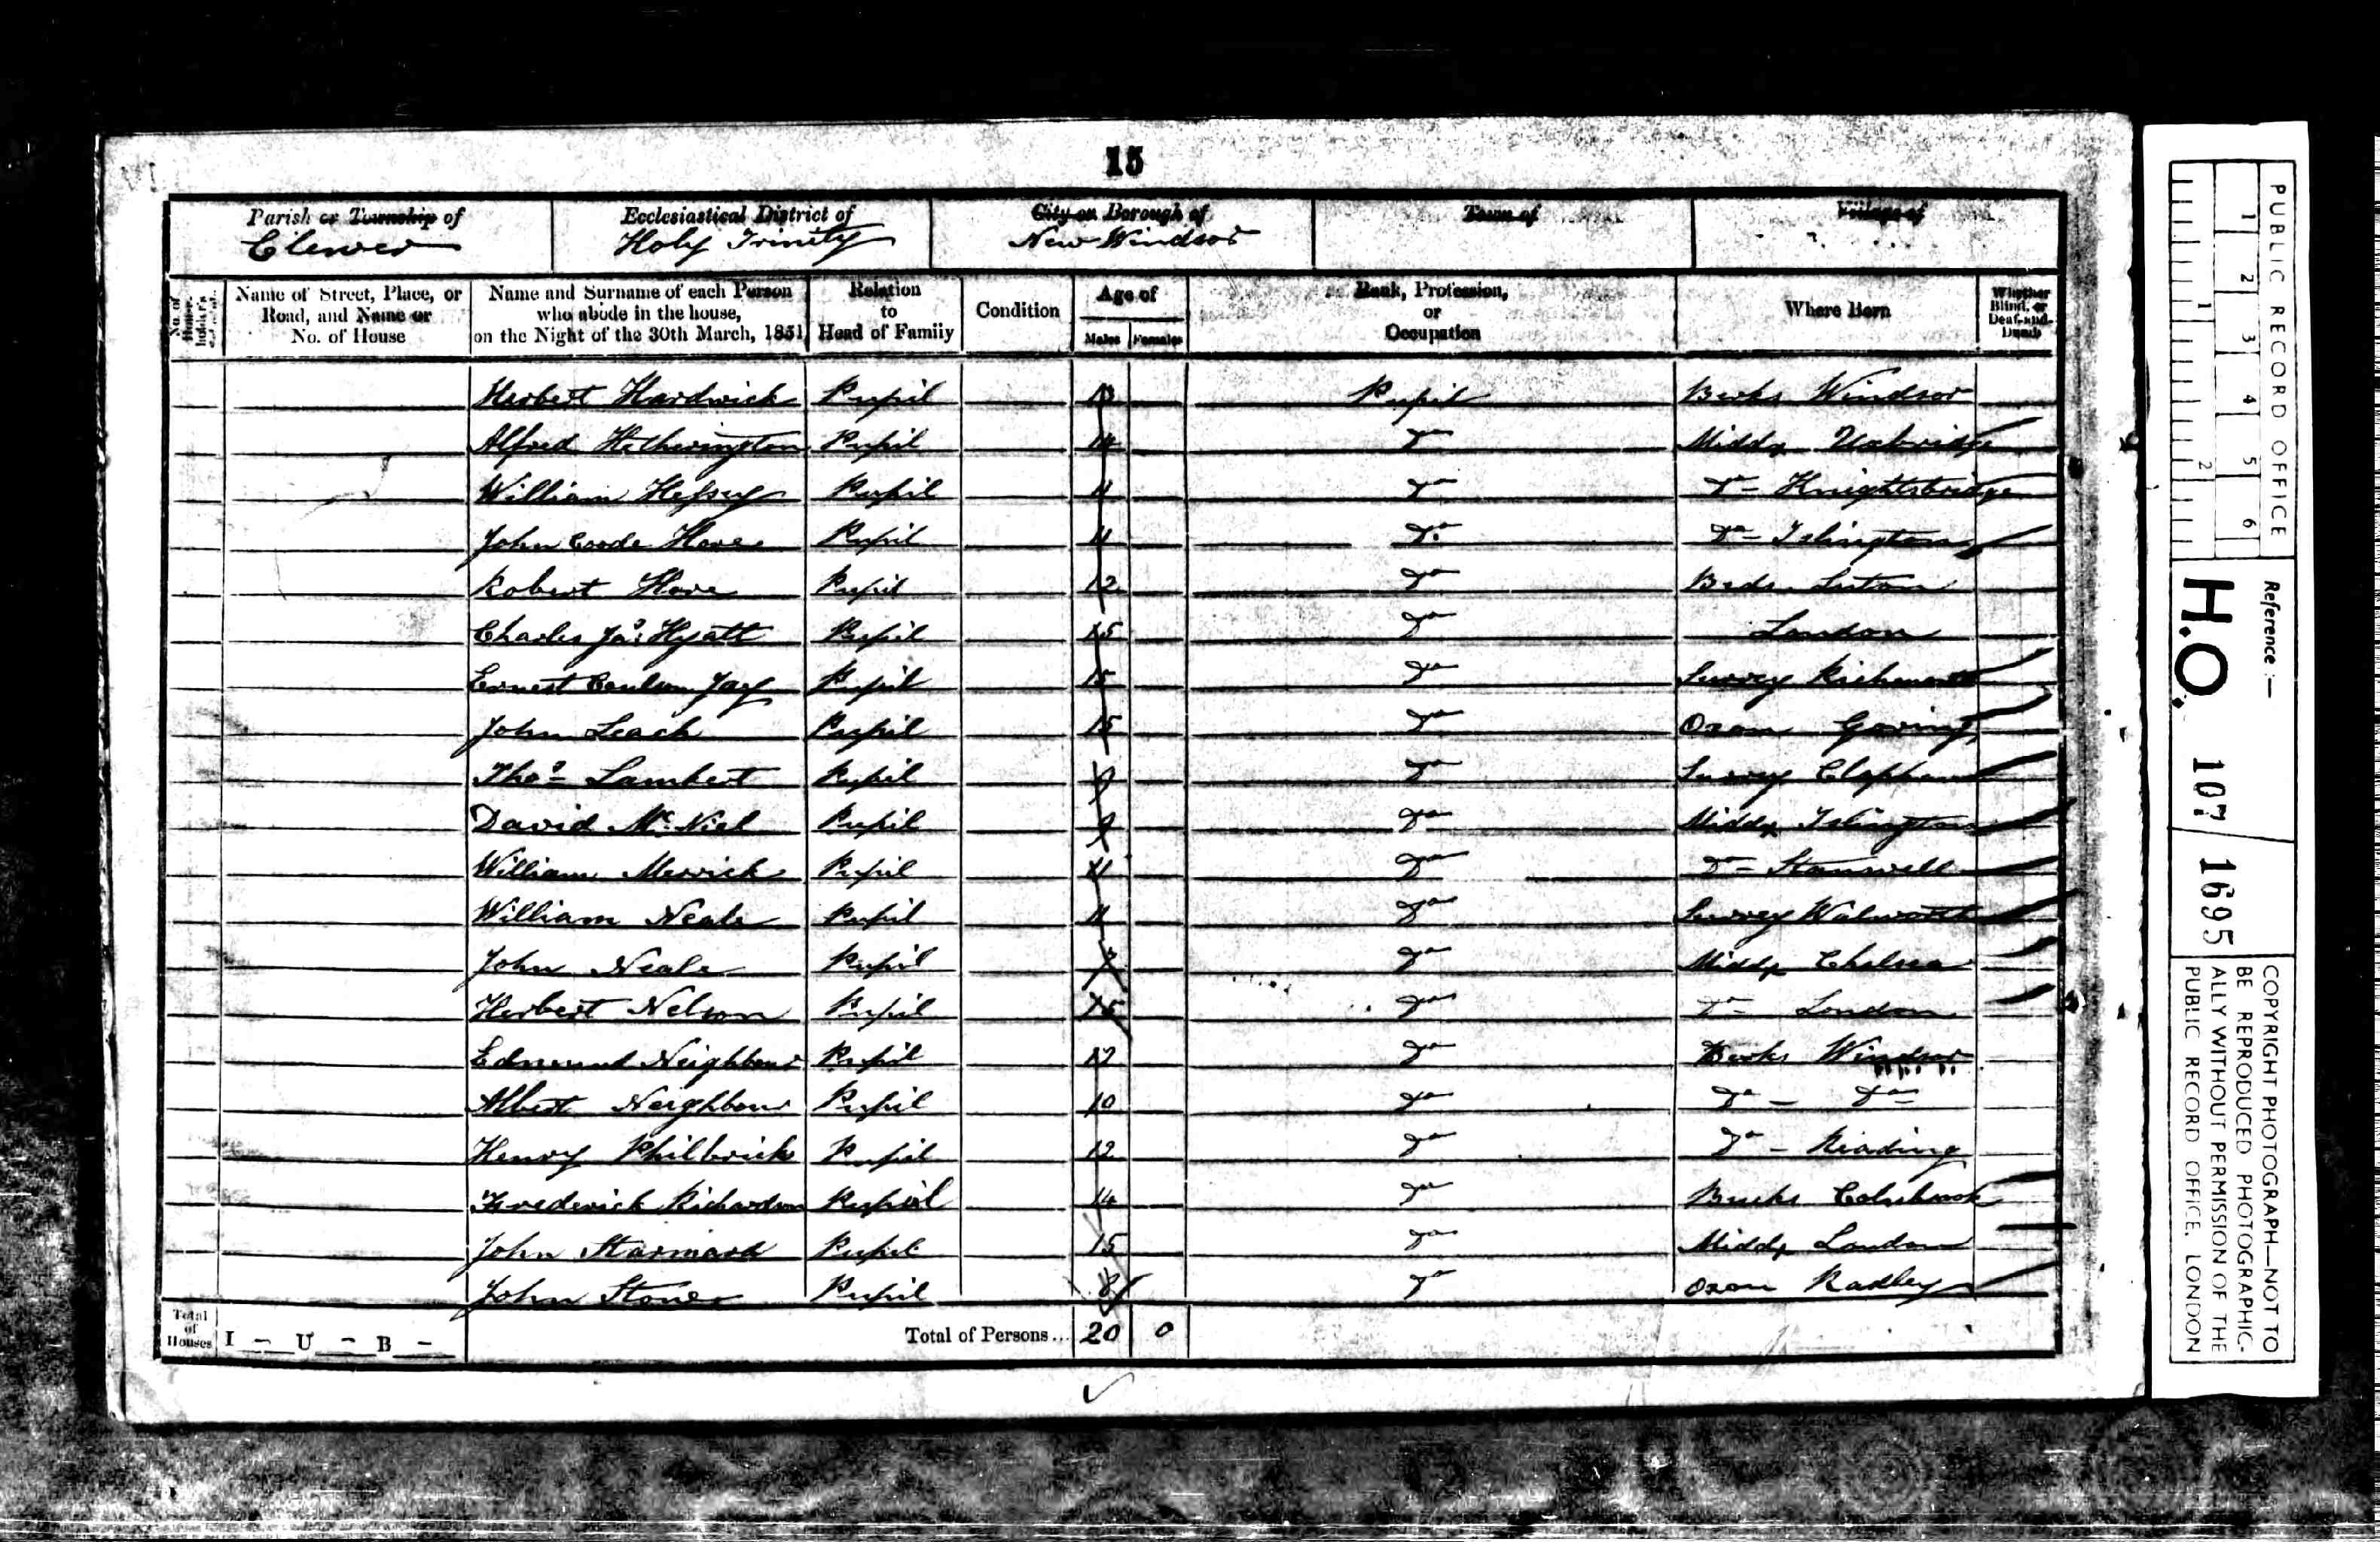 15
Parish or Township of
Clewer
Ecclesiastical District of
Holy Trinity
City or Borough of
New Windsor
Town of
Village of
No. of House-holder's
Name of Street, Place, or Road, and Name or No. of House
Name and Surname of each Person who abode in the house, on the Night of the 30th March, 1851
Relation to Head of Family
Condition
Age of
Males Females
Rank, Profession, or Occupation
Where Born
Whether Blind, or Deaf-and-Dumb
Herbert Hardwick Pupil 13 Pupil Berks Windsor
Alfred Hetherington Pupil 14 Do Middx Uxbridge
William Pupil 11 Do Do Knightsbridge
John Coode Hare Pupil 11 Do Do Islington
Robert Hare Pupil 12 Do Beds Luton
Charles Jas Hyatt Pupil 15 Do London
Ernest Coulson Jay Pupil 15 Do Surrey Richmond
John Leach Pupil 15 Do Oxon Goring
Thos Lambert Pupil 9 Do Surrey Clapham
David McNiel Pupil 9 Do Middx Islington
William Merrick Pupil 11 Do Do Stanwell
William Neale Pupil 11 Do Surrey Walworth
John Neale Pupil Do Middx Chelsea
Herbert Nelson Pupil 15 Do Do London
Edmund Neighbour Pupil 12 Do Berks Windsor
Albert Neighbour Pupil 10 Do Do Do
Henry Philbrick Pupil 12 Do Do Reading
Frederick Richardson Pupil 14 Do Bucks Colnbrook
John Pupil 15 Do Middx London
John Stone Pupil 8 Do Oxon Radley
Total of Houses I - U - B -
Total of Persons... 20 0
PUBLIC RECORD OFFICE
1 2 3 4 5 6
1 2
Reference:—
H.O. 107/1695
COPYRIGHT PHOTOGRAPH—NOT TO
BE REPRODUCED PHOTOGRAPHIC-
ALLY WITHOUT PERMISSION OF THE
PUBLIC RECORD OFFICE, LONDON